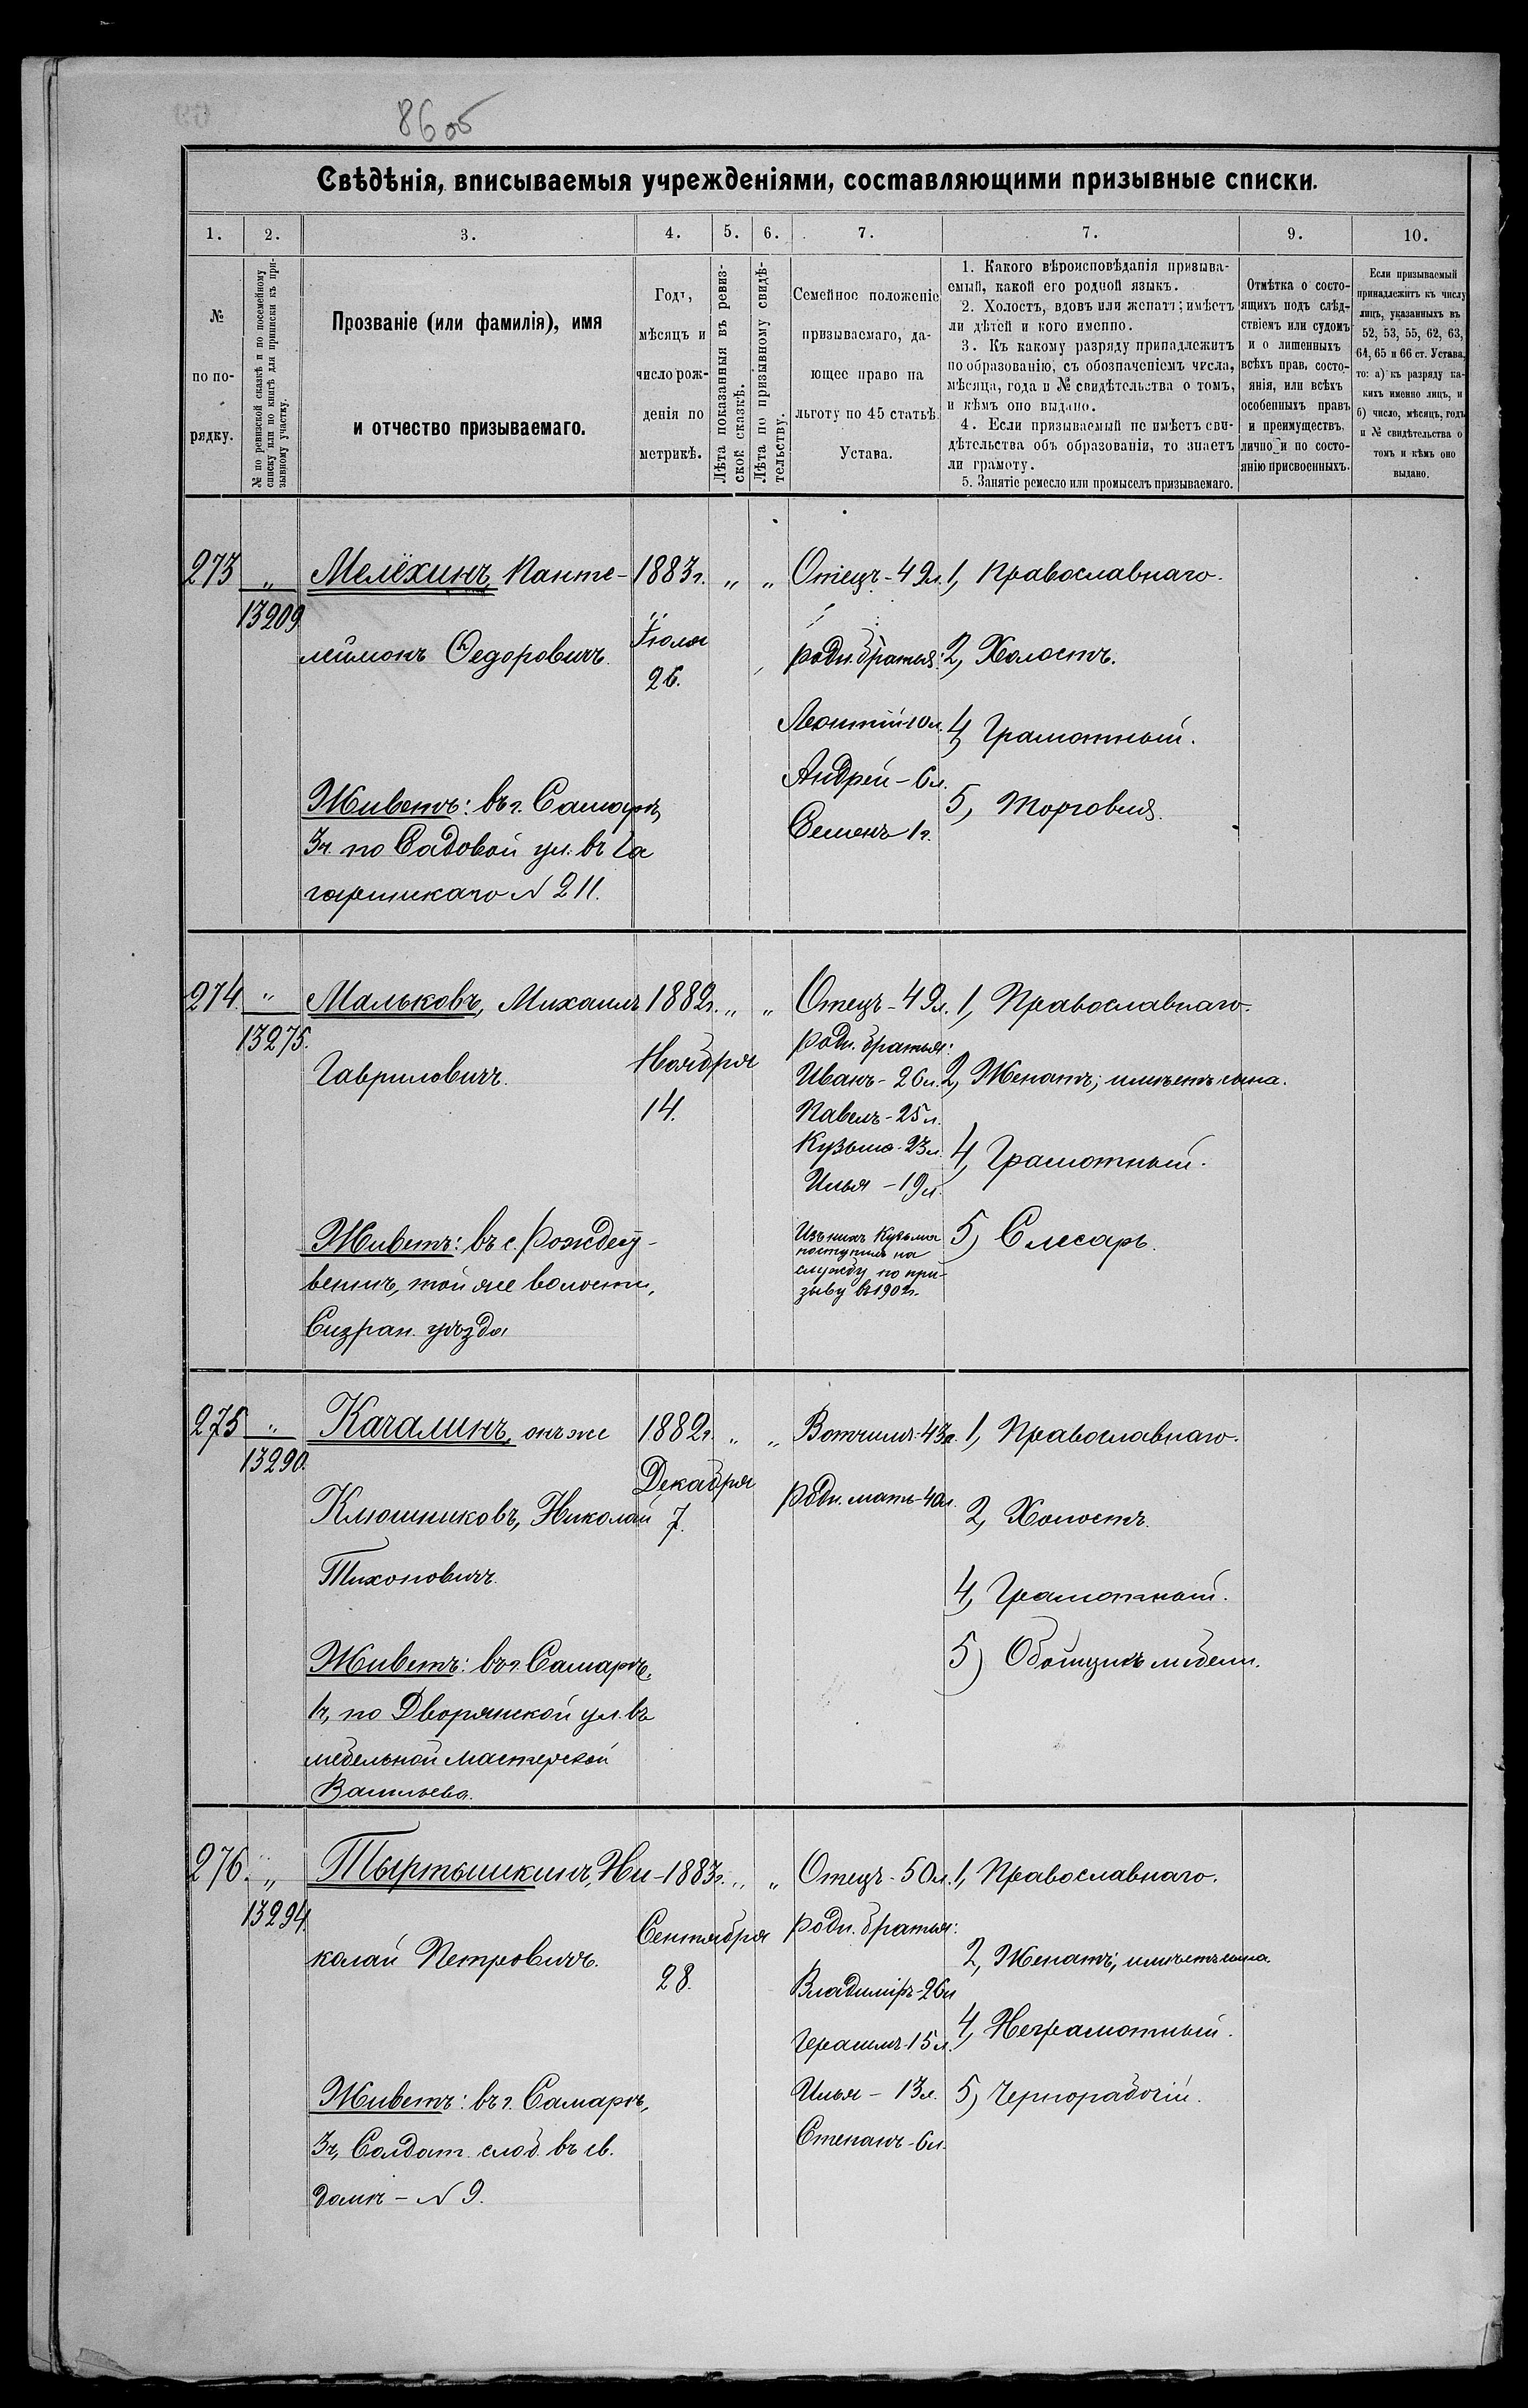 86об
Свѣдѣнія, вписываемыя учрежденіями, составляющими призывные списки.
1. 2. 3. 4. 5. 6. 7. 7. 9. 10.
№
по по-
рядку.
№ по ревизской сказкѣ и по посемейному
списку или по книгѣ для приписки къ при-
зывному участку.
Прозваніе (или фамилія), имя
и отчество призываемаго.
Годъ,
мѣсяцъ и
число рож-
денія по
метрикѣ.
Лѣта показанныя въ ревиз-
ской сказкѣ.
Лѣта по призывному свидѣ-
тельству.
Семейное положеніе
призываемаго, да-
ющее право на
льготу по 45 статьѣ
Устава.
1. Какого вѣроисповѣданія призыва-
емый, какой его родной языкъ.
2. Холостъ, вдовъ или женатъ; имѣетъ
ли дѣтей и кого именно.
3. Къ какому разряду принадлежитъ
по образованію, съ обозначеніемъ числа,
мѣсяца, года и № свидѣтельства о томъ,
и кѣмъ оно выдано.
4. Если призываемый не имѣетъ сви-
дѣтельства объ образованіи, то знаетъ
ли грамоту.
5. Занятіе ремесло или промыселъ призываемаго.
Отмѣтка о состо-
ящихъ подъ слѣд-
ствіемъ или судомъ
и о лишенныхъ
всѣхъ прав, состо-
янія, или всѣхъ
особенныхъ правъ
и преимуществъ,
лично и по состо-
янію присвоенныхъ.
Если призываемый
принадлежитъ къ числу
лицъ, указанныхъ въ
52, 53, 55, 62, 63,
64, 65 и 66 ст. Устава,
то: а) къ разряду ка-
кихъ именно лицъ, и
б) число, мѣсяцъ, годъ
и № свидѣтельства о
томъ и кѣмъ оно
выдано.
273 "
13209
Мелёхинъ, Панте-
леймонъ Ѳедоровичъ.
Живетъ: въ г. Самарѣ,
3ч. по Садовой ул. въ
№ 211.
1883г. " "
Іюля
26.
Отецъ - 42л.
родн. братья:
Леонтій 10л.
Андрей - 6л.
Семенъ 1г.
1, Православнаго.
2, Холостъ.
4, Грамотный.
5, Торговля.
274. "
13275.
Мальковъ, Михаилъ
Гавриловичъ.
Живетъ: въ с. Рождест-
венкѣ, той же волости,
Сызран. уѣзда
1882г. " "
Ноября
14.
Отецъ - 49л.
родн. братья:
Иванъ - 26л.
Павелъ - 25л.
Кузьма - 23л.
Илья - 19л.
Изъ нихъ Кузьма
поступилъ на
службу по при-
зыву въ 1902г.
1, Православнаго.
2, Женатъ, имѣетъ сына.
4, Грамотный.
5, Слесарь.
275 "
13290.
Качалинъ, онъ же
Клюшниковъ, Николай
Тихоновичъ.
Живетъ: въ г. Самарѣ,
1ч, по Дворянской ул. въ
мебельной мастерской
Васильева.
1882г. " "
Декабря
7.
Вотчимъ - 43л.
родн. мать - 40л.
1, Православнаго.
2, Холостъ.
4, Грамотный.
5) Обойщикъ мебели.
276. "
13294.
Тыртышкинъ, Ни-
колай Петровичъ.
Живетъ: въ г. Самарѣ,
3ч, Солдат. слоб. въ св.
домѣ - № 9.
1883г. " "
Сентября
28.
Отецъ - 50л.
родн. братья:
Владиміръ - 26л
Герасимъ - 15л.
Илья - 13л.
Степанъ - 6л.
1, Православнаго.
2, Женатъ, имѣетъ сына.
4, Неграмотный.
5, Чернорабочій.